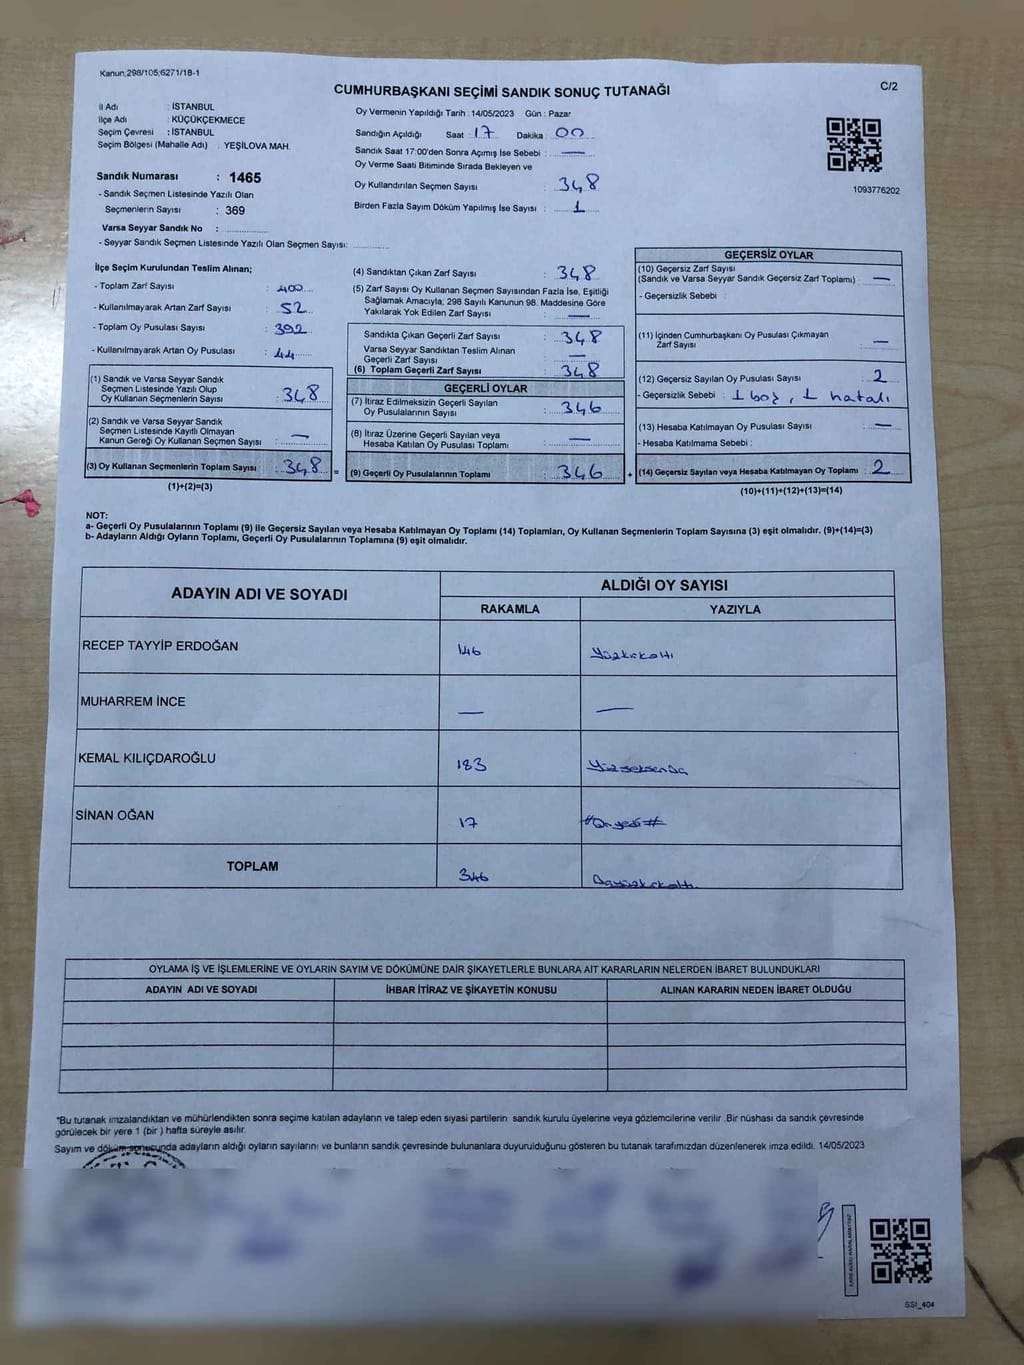 Kanun;298/105;6271/18-1
C/2
CUMHURBAŞKANI SEÇİMİ SANDIK SONUÇ TUTANAĞI
İl Adı : İSTANBUL
İlçe Adı : KÜÇÜKÇEKMECE
Seçim Çevresi : İSTANBUL
Seçim Bölgesi (Mahalle Adı) : YEŞİLOVA MAH.
Oy Vermenin Yapıldığı Tarih : 14/05/2023 Gün : Pazar
Sandığın Açıldığı Saat 17 Dakika : 00
Sandık Saat 17:00'den Sonra Açımış İse Sebebi : —
Oy Verme Saati Bitiminde Sırada Bekleyen ve
Oy Kullandırılan Seçmen Sayısı : 348
Birden Fazla Sayım Döküm Yapılmış İse Sayısı : 1
1093776202
Sandık Numarası : 1465
- Sandık Seçmen Listesinde Yazılı Olan
Seçmenlerin Sayısı : 369
Varsa Seyyar Sandık No :
- Seyyar Sandık Seçmen Listesinde Yazılı Olan Seçmen Sayısı:
İlçe Seçim Kurulundan Teslim Alınan;
- Toplam Zarf Sayısı : 400
- Kullanılmayarak Artan Zarf Sayısı : 52
- Toplam Oy Pusulası Sayısı : 392
- Kullanılmayarak Artan Oy Pusulası : 44
(1) Sandık ve Varsa Seyyar Sandık
Seçmen Listesinde Yazılı Olup
Oy Kullanan Seçmenlerin Sayısı : 348
(2) Sandık ve Varsa Seyyar Sandık
Seçmen Listesinde Kayıtlı Olmayan
Kanun Gereği Oy Kullanan Seçmen Sayısı : —
(3) Oy Kullanan Seçmenlerin Toplam Sayısı : 348 =
(1)+(2)=(3)
(4) Sandıktan Çıkan Zarf Sayısı : 348
(5) Zarf Sayısı Oy Kullanan Seçmen Sayısından Fazla İse, Eşitliği
Sağlamak Amacıyla; 298 Sayılı Kanunun 98. Maddesine Göre
Yakılarak Yok Edilen Zarf Sayısı : —
Sandıkta Çıkan Geçerli Zarf Sayısı : 348
Varsa Seyyar Sandıktan Teslim Alınan
Geçerli Zarf Sayısı : —
(6) Toplam Geçerli Zarf Sayısı : 348
GEÇERLİ OYLAR
(7) İtiraz Edilmeksizin Geçerli Sayılan
Oy Pusulalarının Sayısı : 346
(8) İtiraz Üzerine Geçerli Sayılan veya
Hesaba Katılan Oy Pusulası Toplamı : —
(9) Geçerli Oy Pusulalarının Toplamı : 346 +
GEÇERSİZ OYLAR
(10) Geçersiz Zarf Sayısı
(Sandık ve Varsa Seyyar Sandık Geçersiz Zarf Toplamı) : —
- Geçersizlik Sebebi :
(11) İçinden Cumhurbaşkanı Oy Pusulası Çıkmayan
Zarf Sayısı : —
(12) Geçersiz Sayılan Oy Pusulası Sayısı : 2
- Geçersizlik Sebebi : 1 boş, 1 hatalı
(13) Hesaba Katılmayan Oy Pusulası Sayısı : —
- Hesaba Katılmama Sebebi :
(14) Geçersiz Sayılan veya Hesaba Katılmayan Oy Toplamı : 2
(10)+(11)+(12)+(13)=(14)
NOT:
a- Geçerli Oy Pusulalarının Toplamı (9) ile Geçersiz Sayılan veya Hesaba Katılmayan Oy Toplamı (14) Toplamları, Oy Kullanan Seçmenlerin Toplam Sayısına (3) eşit olmalıdır. (9)+(14)=(3)
b- Adayların Aldığı Oyların Toplamı, Geçerli Oy Pusulalarının Toplamına (9) eşit olmalıdır.
ADAYIN ADI VE SOYADI
ALDIĞI OY SAYISI
RAKAMLA YAZIYLA
RECEP TAYYİP ERDOĞAN 146 Yüzkırkaltı
MUHARREM İNCE — —
KEMAL KILIÇDAROĞLU 183 Yüzseksenüç
SİNAN OĞAN 17 #Onyedi#
TOPLAM 346 Üçyüzkırkaltı
OYLAMA İŞ VE İŞLEMLERİNE VE OYLARIN SAYIM VE DÖKÜMÜNE DAİR ŞİKAYETLERLE BUNLARA AİT KARARLARIN NELERDEN İBARET BULUNDUKLARI
ADAYIN ADI VE SOYADI İHBAR İTİRAZ VE ŞİKAYETİN KONUSU ALINAN KARARIN NEDEN İBARET OLDUĞU
*Bu tutanak imzalandıktan ve mühürlendikten sonra seçime katılan adayların ve talep eden siyasi partilerin sandık kurulu üyelerine veya gözlemcilerine verilir .Bir nüshası da sandık çevresinde
görülecek bir yere 1 (bir ) hafta süreyle asılır.
Sayım ve döküm sonucunda adayların aldığı oyların sayılarını ve bunların sandık çevresinde bulunanlara duyurulduğunu gösteren bu tutanak tarafımızdan düzenlenerek imza edildi. 14/05/2023
SSI_404